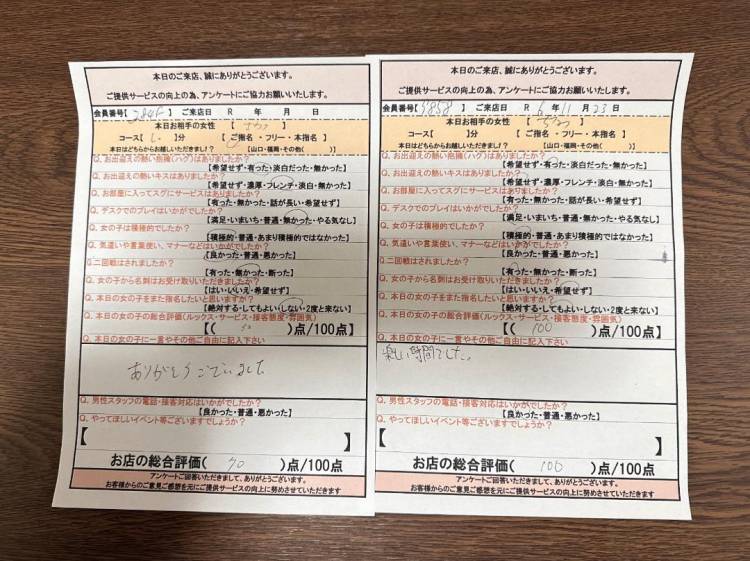 本日のご来店、誠にありがとうございます。
ご提供サービスの向上の為、アンケートにご協力お願いいたします。
会員番号【 】 ご来店日 R 年 月 日
本日お相手の女性 【 】
コース【 】分 【ご指名・フリー・本指名】
本日はどちらからお越しいただきまし?【山口・福岡・その他( )】
Q. お出迎えの熱い抱擁(ハグ)はありましたか?
【希望せず・有った・淡白だった・無かった】
Q. お出迎えの熱いキスはありましたか?
【希望せず・濃厚・フレンチ・淡白・無かった】
Q. お部屋に入ってスグにサービスはありましたか?
【有った・無かった・話が長い・希望せず】
Q. デスクでのプレイはいかがでしたか?
【満足・いまいち・普通・無かった・やる気なし】
Q. 女の子は積極的でしたか?
【積極的・普通・あまり積極的ではなかった】
Q. 気遣いや言葉使い、マナーなどはいかがでしたか?
【良かった・普通・悪かった】
Q. 二回戦はされましたか?
【有った・無かった・断った】
Q. 女の子から名刺はお受け取りいただきましたか?
【はい・いいえ・希望せず】
Q. 本日の女の子をまた指名したいと思いますか?
【絶対する・してもよい・しない・2度と来ない】
Q. 本日の女の子の総合評価(ルックス・サービス・接客態度・雰囲気)
【( )点/100点】
Q. 本日の女の子に一言やその他ご自由に記入下さい
ありがとうございました
Q. 男性スタッフの電話・接客対応はいかがでしたか?
【良かった・普通・悪かった】
Q. やってほしいイベント等ございますでしょうか?
【 】
お店の総合評価( )点/100点
アンケートご回答いただきまして、ありがとうございます。
お客様からのご意見ご感想を元にご提供サービスの向上に努めさせていただきます
本日のご来店、誠にありがとうございます。
ご提供サービスの向上の為、アンケートにご協力お願いいたします。
会員番号【5858】 ご来店日 R 6 年 11 月 23 日
本日お相手の女性 【 】
コース【 】分 【ご指名・フリー・本指名】
本日はどちらからお越しいただきまし?【山口・福岡・その他( )】
Q. お出迎えの熱い抱擁(ハグ)はありましたか?
【希望せず・有った・淡白だった・無かった】
Q. お出迎えの熱いキスはありましたか?
【希望せず・濃厚・フレンチ・淡白・無かった】
Q. お部屋に入ってスグにサービスはありましたか?
【有った・無かった・話が長い・希望せず】
Q. デスクでのプレイはいかがでしたか?
【満足・いまいち・普通・無かった・やる気なし】
Q. 女の子は積極的でしたか?
【積極的・普通・あまり積極的ではなかった】
Q. 気遣いや言葉使い、マナーなどはいかがでしたか?
【良かった・普通・悪かった】
Q. 二回戦はされましたか?
【有った・無かった・断った】
Q. 女の子から名刺はお受け取りいただきましたか?
【はい・いいえ・希望せず】
Q. 本日の女の子をまた指名したいと思いますか?
【絶対する・してもよい・しない・2度と来ない】
Q. 本日の女の子の総合評価(ルックス・サービス・接客態度・雰囲気)
【( 100 )点/100点】
Q. 本日の女の子に一言やその他ご自由に記入下さい
楽しい時間でした。
Q. 男性スタッフの電話・接客対応はいかがでしたか?
【良かった・普通・悪かった】
Q. やってほしいイベント等ございますでしょうか?
【 】
お店の総合評価( 100 )点/100点
アンケートご回答いただきまして、ありがとうございます。
お客様からのご意見ご感想を元にご提供サービスの向上に努めさせていただきます